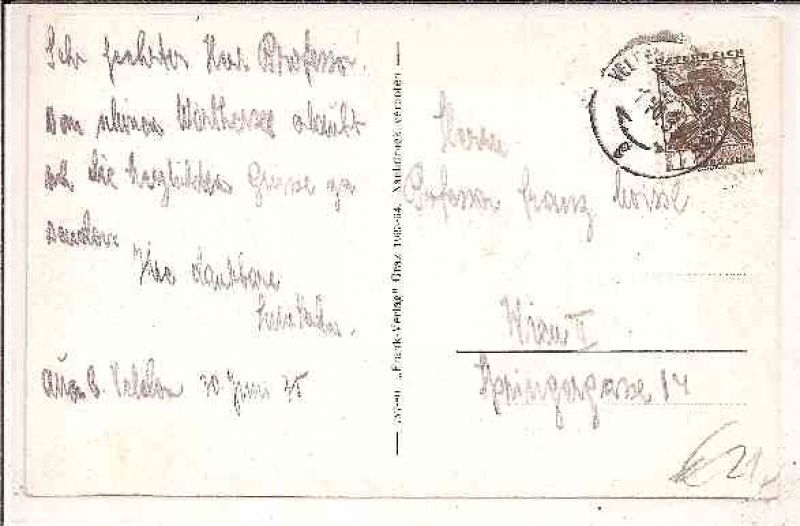 Sehr geehrter Herr Professor!
Vom schönen Wörthersee erlaubt
sich die herzlichsten Grüsse zu
senden
Ihre dankbare
Auen b. Velden 30 Juni 35
"Frank-Verlag" Graz Nachdruck verboten
VELDEN
ÖSTERREICH
Herrn
Professor Franz
Wien II
Springergasse 14
€ 21,-